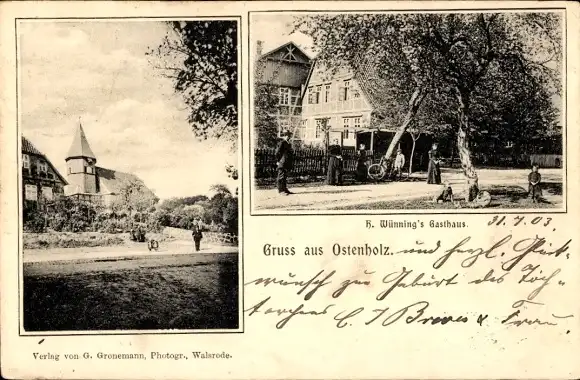 H. Wünning's Gasthaus.
31.7.03.
Gruss aus Ostenholz. und herzl. Glück-
wünsch zur Geburt des Töch-
terchens
Frau
Verlag von G. Gronemann, Photogr., Walsrode.